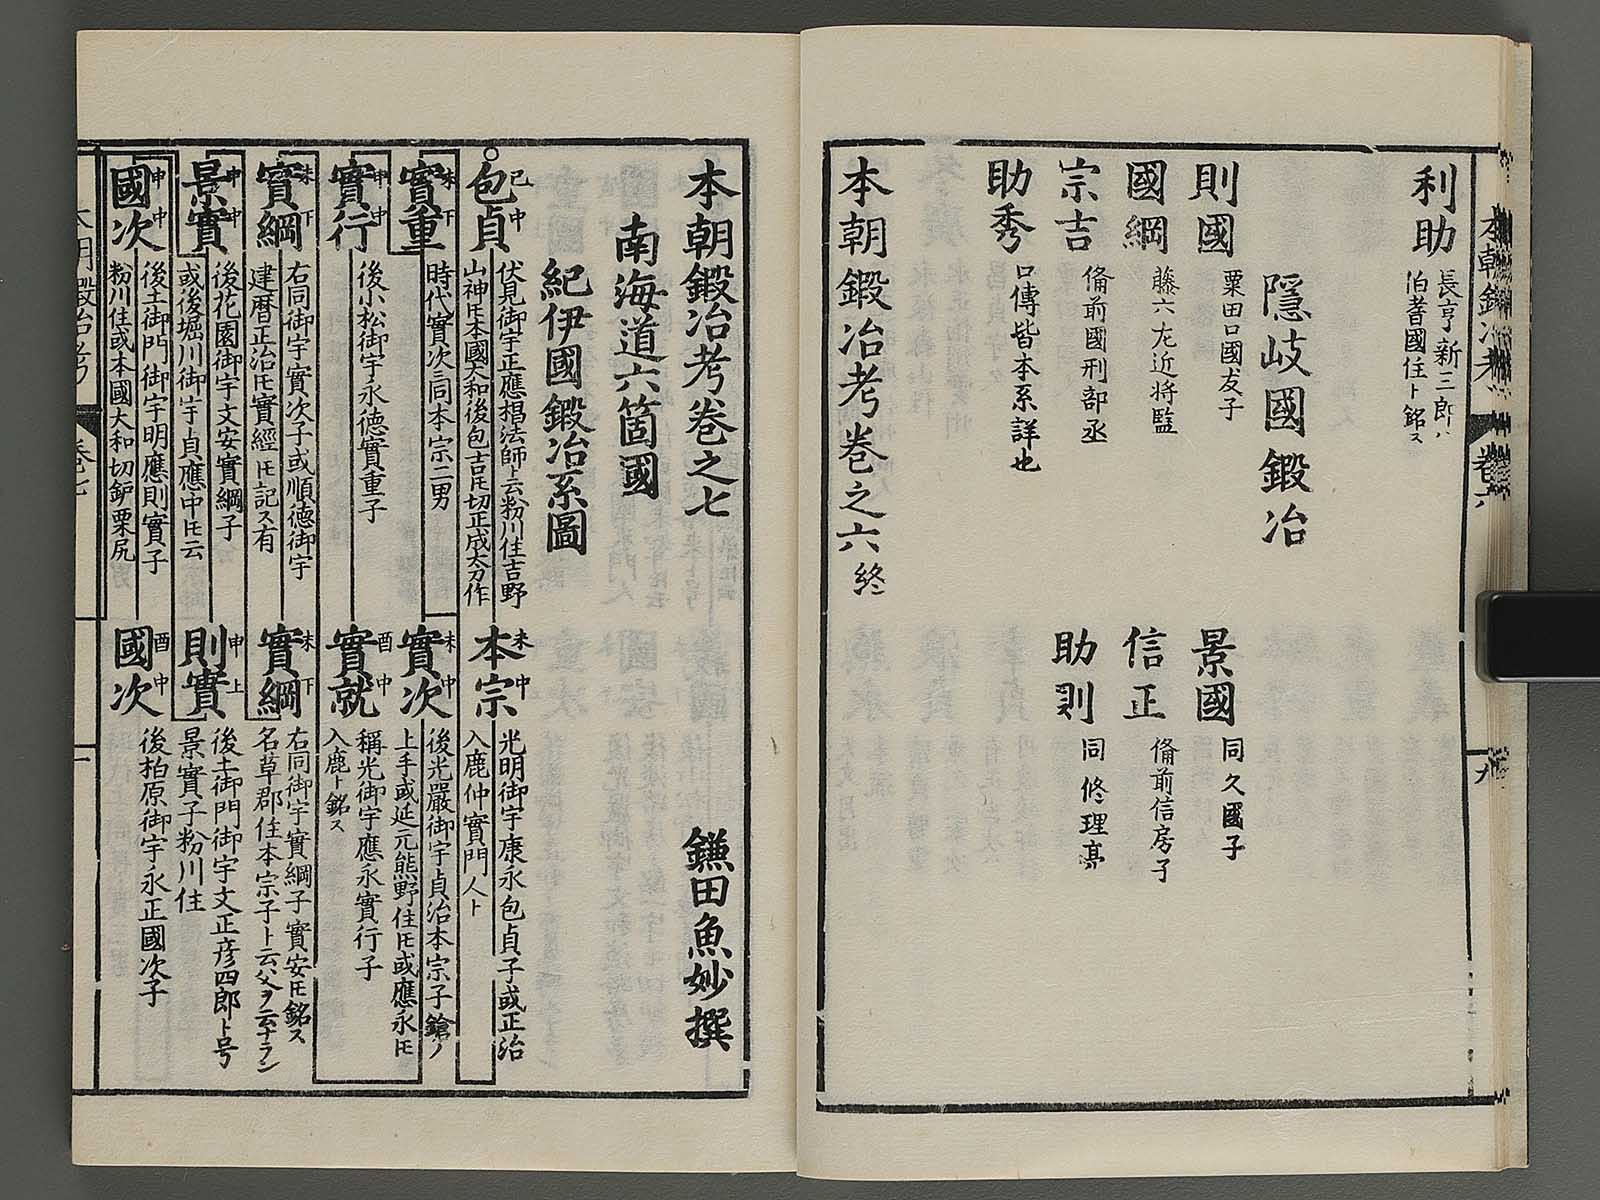 利助
長亨新三郎ハ
伯耆國住ト銘ス
隠岐國鍛冶
則國
粟田口國友子
景國
同久國子
國綱
藤六左近将監
信正
備前信房子
宗吉
備前國刑部丞
助則
同修理亮
助秀
口傳皆本系詳也
本朝鍛冶考巻之六終
本朝鍛冶考巻之七
鎌田魚妙撰
南海道六箇國
紀伊國鍛冶系圖
包貞
巳中
伏見御宇正應揚法師ト云粉川住吉野
山神氏本國大和後包吉氏切正成太刀作
本宗
未中
光明御宇康永包貞子或正治
入鹿仲實門人ト
實重
未下
時代實次ニ同本宗二男
實次
未中
後光嚴御宇貞治本宗子鎗ノ
上手或延元熊野住氏或應永氏
實行
申中
後小松御宇永德實重子
實就
酉中
稱光御宇應永實行子
入鹿ト銘ス
實綱
未下
右同御宇實次子或順德御宇
建暦正治氏實經氏記ス有
實綱
未下
右同御宇實綱子實安氏銘ス
名草郡住本宗子ト云父ヲ云ナラン
景實
申中
後花園御宇文安實綱子
或後堀川御宇貞應中氏云
則實
申上
後土御門御宇文正彦四郎ト号
景實子粉川住
國次
申中
後土御門御宇明應則實子
粉川住或本國大和切鈩栗尻
國次
酉中
後柏原御宇永正國次子